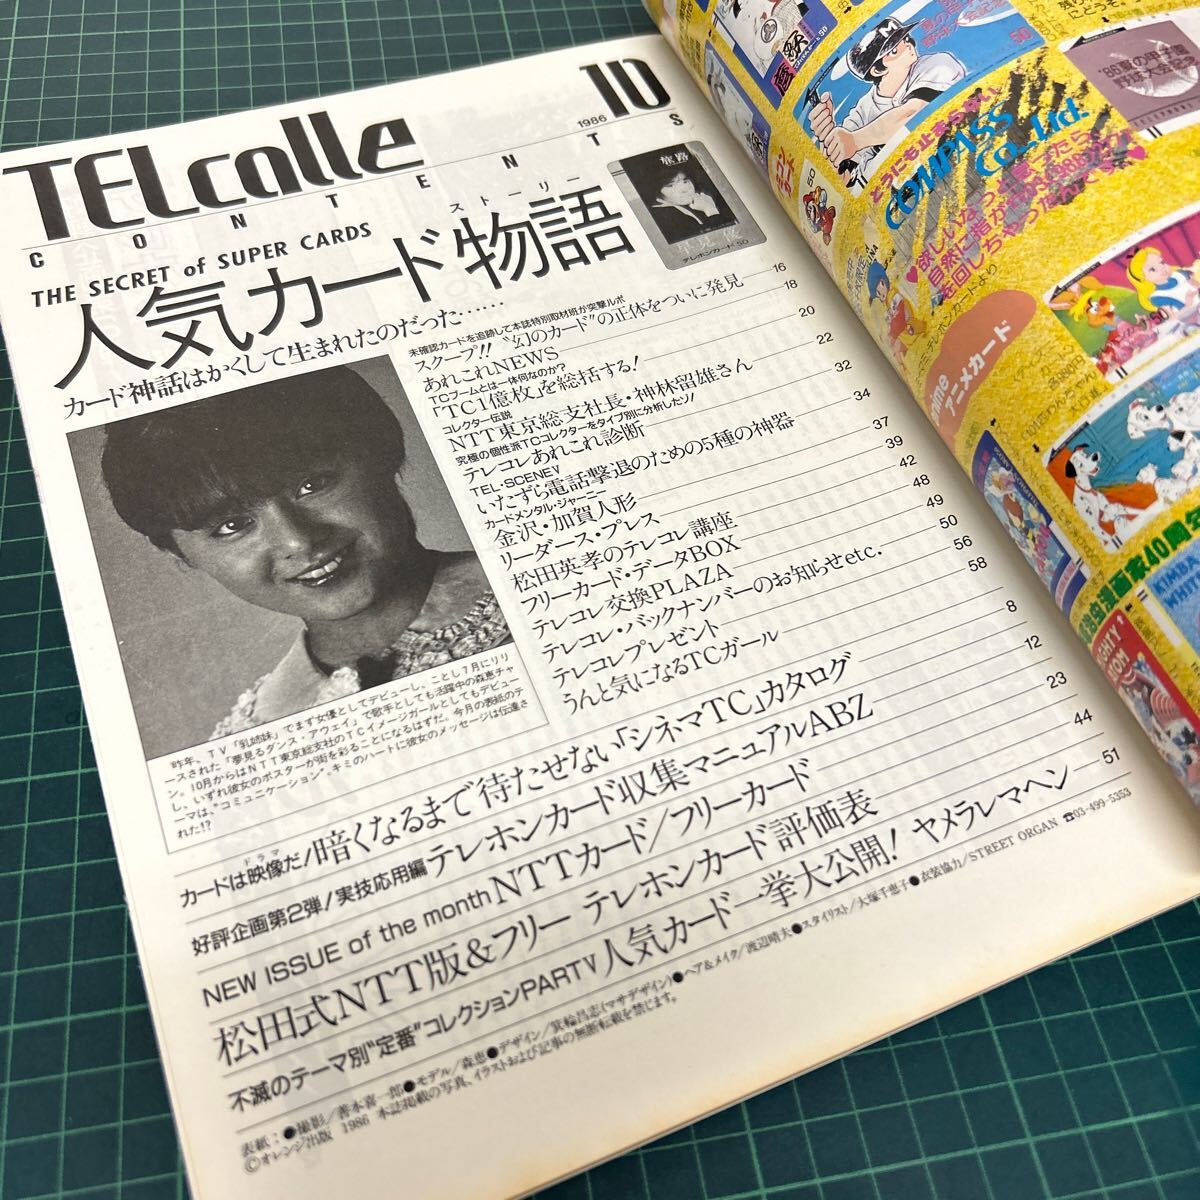 TELcolle
1986
10
CONTENTS
THE SECRET of SUPER CARDS
ストーリー
人気カード物語
カード神話はかくして生まれたのだった……
旅路
テレホンカード50
未確認カードを追跡して本誌特別取材班が突撃ルポ
スクープ!!“幻のカード”の正体をついに発見 16
あれこれNEWS 18
TCブームとは一体何なのか?
「TC1億枚」を総括する! 20
コレクター伝説
NTT東京総支社長・神林留雄さん 22
究極の個性派TCコレクターをタイプ別に分析したゾ!
テレコレあれこれ診断 32
TEL・SCENE V
いたずら電話撃退のための5種の神器 34
カードメンタル・ジャーニー
金沢・加賀人形 37
リーダース・プレス 39
松田英孝のテレコレ講座 42
フリーカード・データBOX 48
テレコレ交換PLAZA 49
テレコレ・バックナンバーのお知らせetc. 50
テレコレプレゼント 56
うんと気になるTCガール 58
昨年、TV「乳姉妹」でまず女優としてデビューし、ことし7月にリリ
ースされた「夢見るダンス・アウェイ」で歌手としても活躍中の森恵チャ
ン。10月からはNTT東京総支社のTCイメージガールとしてもデビュー
し、いずれ彼女のポスターが街を彩ることになるはずだ。今月の表紙のテ
ーマは、“コミュニケーション”。キミのハートに彼女のメッセージは伝達さ
れた!?
ドラマ
カードは映像だ!暗くなるまで待たせない「シネマTC」カタログ 8
好評企画第2弾!実技応用編テレホンカード収集マニュアルABZ 12
NEW ISSUE of the month NTTカード/フリーカード 23
松田式NTT版&フリー テレホンカード評価表 44
不滅のテーマ別“定番”コレクションPART V 人気カード一挙大公開! ヤメラレマヘン 51
表紙:●撮影/善本喜一郎●モデル/森恵●デザイン/箕輪昌志(マサデザイン)●ヘア&メイク/渡辺晴夫●スタイリスト/大塚千恵子●衣装協力/STREET ORGAN ☎03-499-5353
©オレンジ出版 1986 本誌掲載の写真、イラストおよび記事の無断転載を禁じます。
どうにも止まらない
COMPASS
Co., Ltd.
♥欲しいなって注意してたら
自然に指が
を回しちゃった
anime
アニメカード
'86夏の甲子園
50